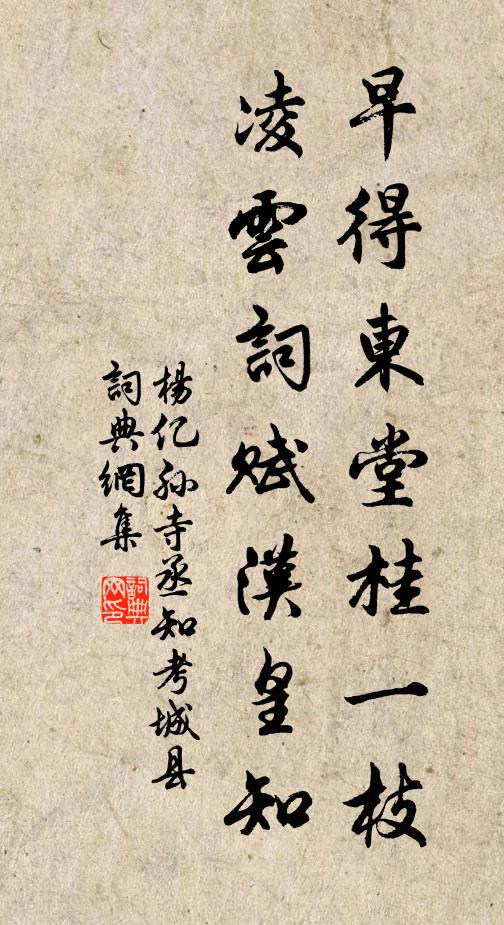 早得東堂桂一枝
凌雲詞賦漢皇知
楊亿孙寺丞知考城县
詞典網集
詞典网印